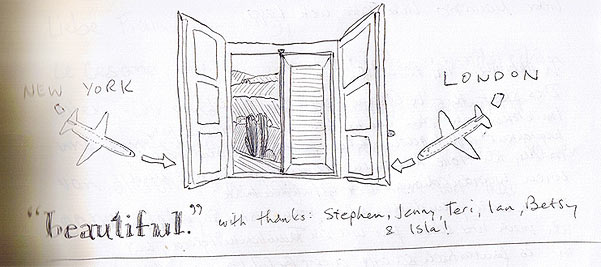 NEW YORK
LONDON
"beautiful." with thanks: Stephen, Jenny, Teri, Ian, Betsy
& Isla!